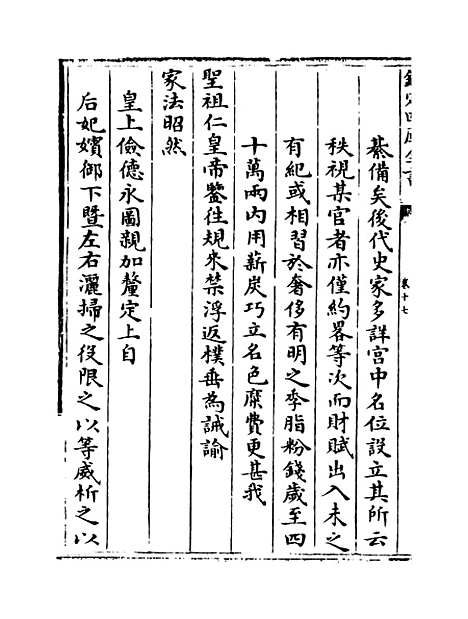 欽定四庫全書
卷十七
綦備矣後代史家多詳宫中名位設立其所云
秩視某官者亦僅約畧等次而財賦出入未之
有紀或相習於奢侈有明之季脂粉錢歲至四
十萬兩内用薪炭巧立名色糜費更甚我
聖祖仁皇帝鑒往規來禁浮返樸垂為誡諭
家法昭然
皇上儉德永圖親加釐定上自
后妃嬪御下暨左右灑掃之役限之以等威析之以